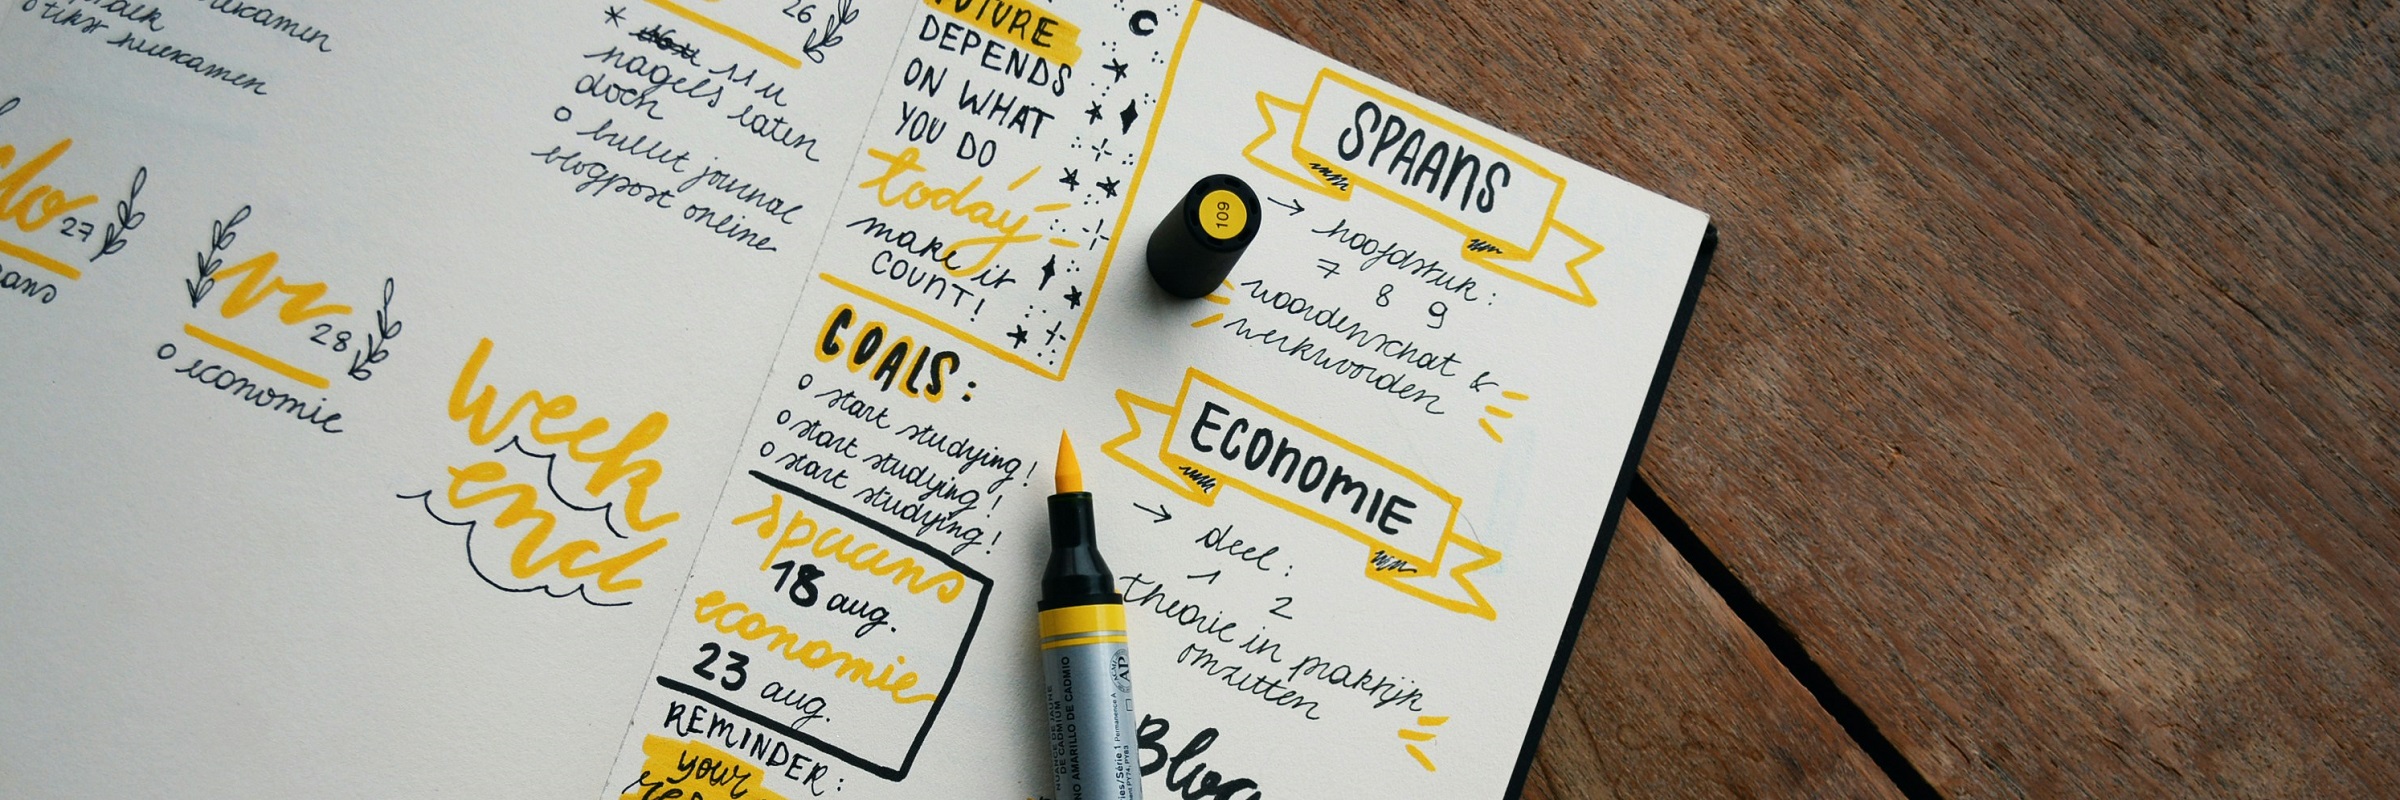 o tikst herexamen
26
* 11 u
nagels laten
doen
o bullet journal
blogpost online
do 27
vr 28
o economie
week
end
FUTURE
DEPENDS
ON WHAT
YOU DO
today
make it
COUNT!
GOALS:
o start studying!
o start studying!
o start studying!
spaans
18 aug.
economie
23 aug.
REMINDER:
your
109
SPAANS
→ hoofdstuk:
7 8 9
woordenschat &
werkwoorden
ECONOMIE
→ deel:
1 2
theorie in praktijk
omzetten
Blog
NUANCE DE JAUNE
DE CADMIUM
AMARILLO DE CADMIO
AP